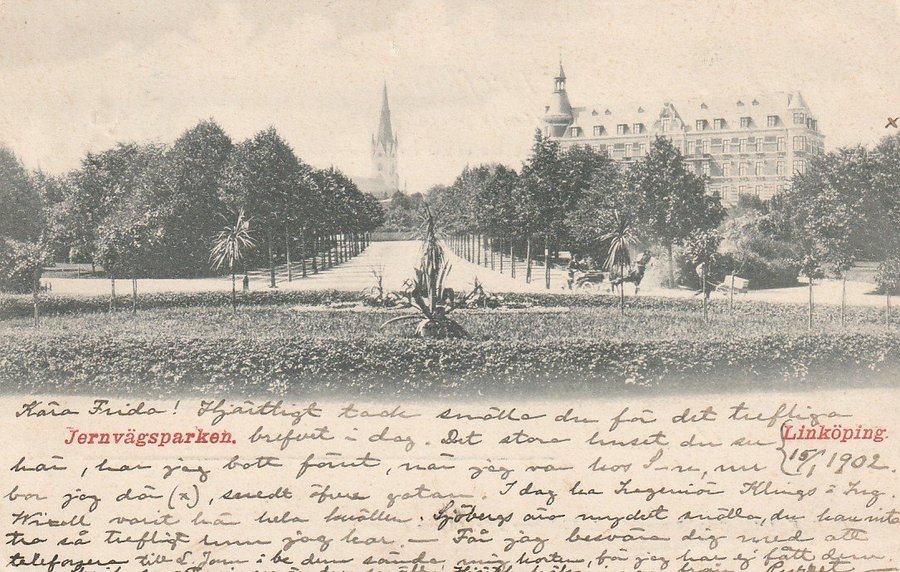 x
Kära Frida! Hjärtligt tack snälla du för det trefliga
Jernvägsparken. brefvet i dag. Det stora huset du ser Linköping.
här, har jag bott förut, när jag var hos I-n, nu 15/1 1902.
bor jag där (x), snedt öfver gatan. I dag ha Ingeniör Klings o Ing.
varit här hela kvällen. Sjöbergs äro mycket snälla, du kan inte
tro så trefligt rum jag har. — Får jag besvära dig med att
telefonera till be dem sända mig korten, för jag har ej fått dem.